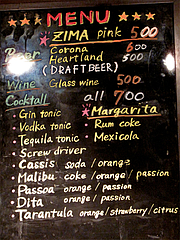 MENU
ZIMA pink 500
Beer Corona 600
Heartland 500
(DRAFT BEER)
Wine Glass wine 500
Cocktail all 700
Margarita
• Gin tonic • Rum coke
• Vodka tonic • Mexicola
• Tequila tonic
• Screw driver
• Cassis soda / orange
• Malibu coke / orange / passion
• Passoa orange / passion
• Dita orange / passion
• Tarantula orange / strawberry / citrus